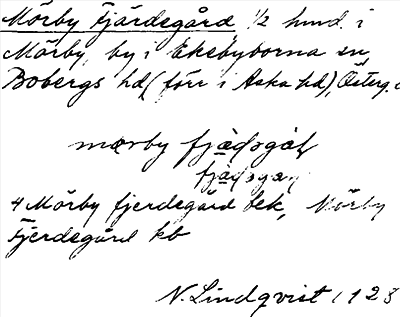 Mörby Fjärdegård 1/2 hmd. i
Mörby, by i Ekebyborna sn,
Bobergs hd (förr i Aska hd), Österg.
mœrby
4 Mörby fjerdegård bek, Mörby
Fjerdegård kb
N. Lindqvist 1923